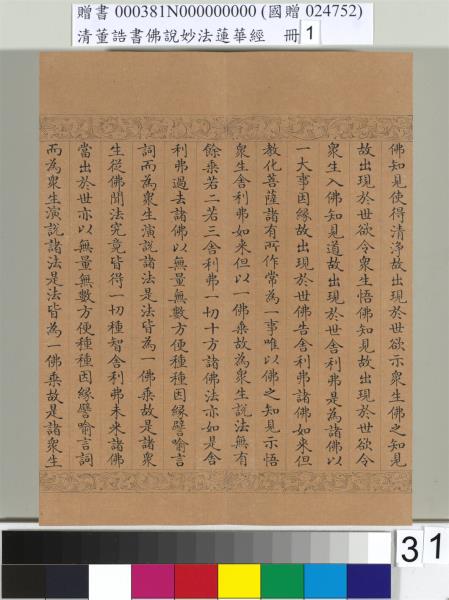 贈書 000381N000000000 (國贈 024752)
清董誥書佛說妙法蓮華經 冊 1
佛知見使得清淨故出現於世欲示眾生佛之知見
故出現於世欲令眾生悟佛知見故出現於世欲令
眾生入佛知見道故出現於世舍利弗是為諸佛以
一大事因緣故出現於世佛告舍利弗諸佛如来但
教化菩薩諸有所作常為一事唯以佛之知見示悟
眾生舍利弗如来但以一佛乘故為眾生說法無有
餘乘若二若三舍利弗一切十方諸佛法亦如是舍
利弗過去諸佛以無量無數方便種種因緣譬喻言
詞而為眾生演說諸法是法皆為一佛乘故是諸眾
生從佛聞法究竟皆得一切種智舍利弗未来諸佛
當出於世亦以無量無數方便種種因緣譬喻言詞
而為眾生演說諸法是法皆為一佛乘故是諸眾生
3 1